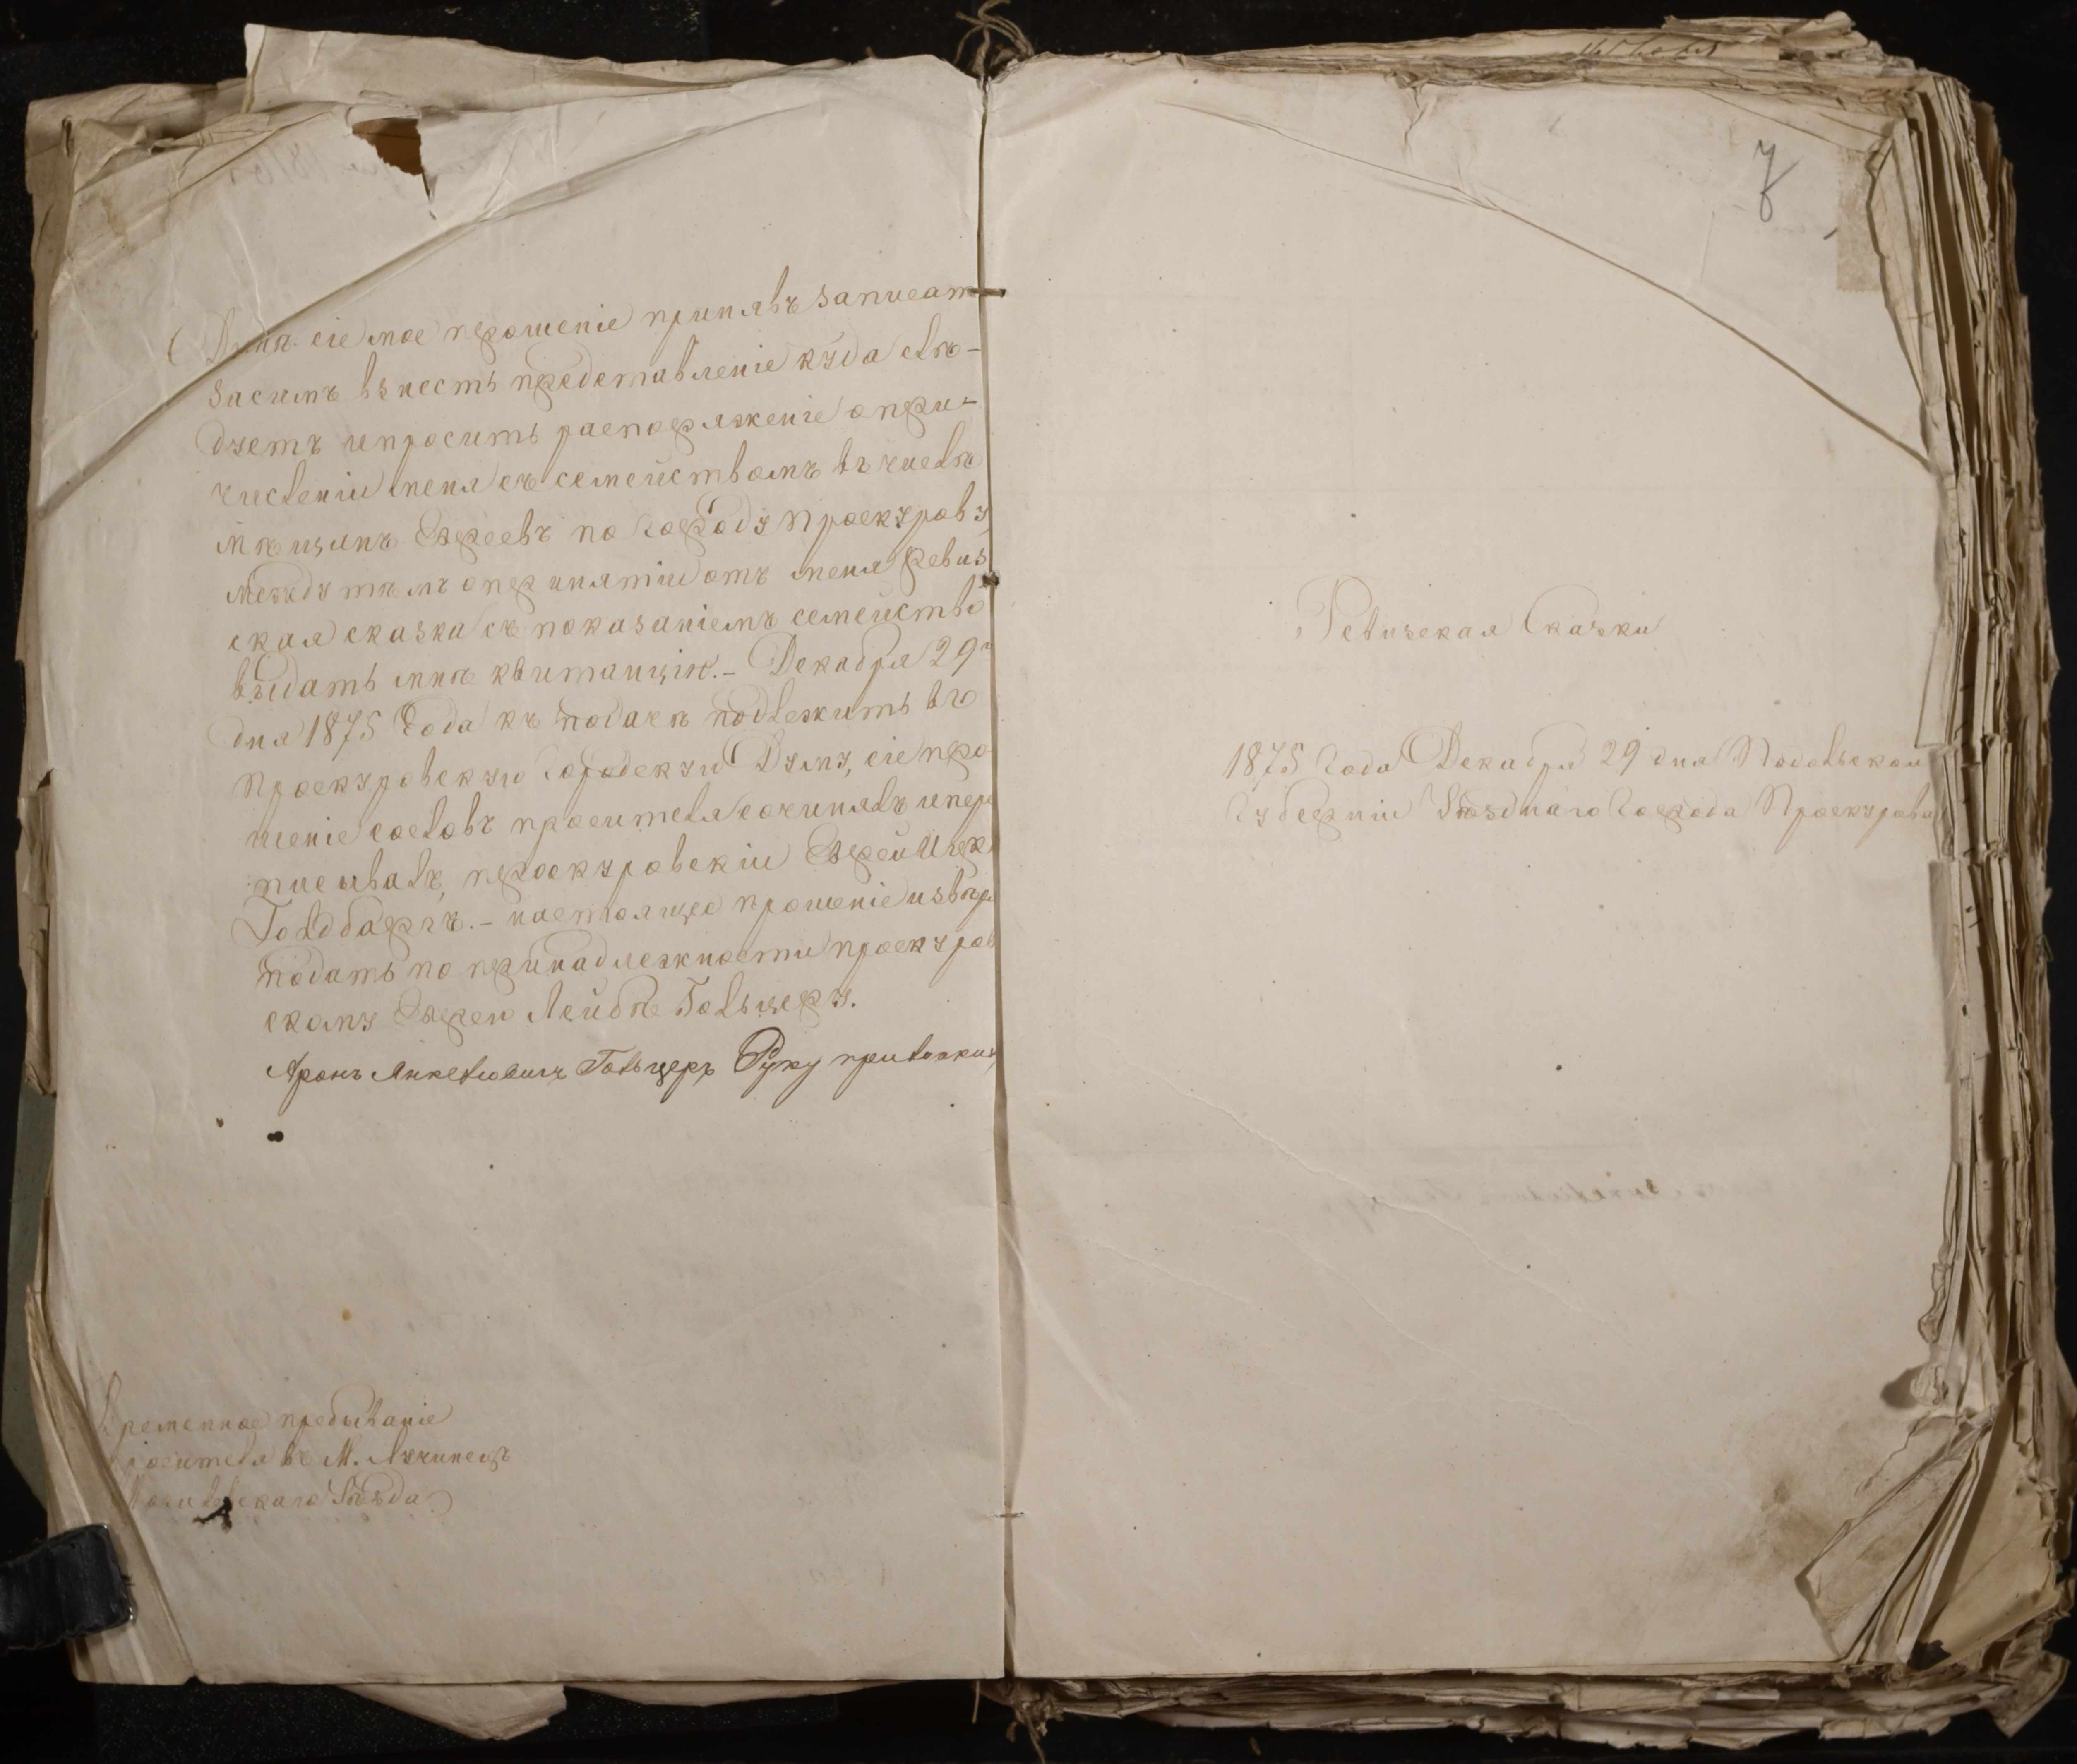 сіе мое прошеніе принявъ записат
засимъ взнесть представленіе куда слѣ-
дуетъ и просить распоряженіе о при-
численіи меня съ семействомъ въ числѣ
мѣщанъ Евреевъ по городу Проскурову,
между тѣмъ о принятіи отъ меня Ревиз
ская сказки съ показаніемъ семейство
выдать мнѣ квитанцію.- Декабря 29
дня 1875 Года къ подачѣ подлежитъ въ
Проскуровскую Городскую Думу, сіе про
шеніе со словъ просителя сочинялъ и пере
писывалъ, проскуровскій Еврей
Голдбаргъ.- настоящее прошеніе
подать по принадлежности проскуров
скому Еврею Лейбѣ Гольцеру.
Аронъ Янкелювичъ Гольцеръ Руку приложилъ
Временное пребываніе
просителя въ М. Лучинецъ
Могилевскаго Уѣзда
7
Ревизская Сказка
1875 Года Декабря 29 дня Подольской
Губерніи Уѣзднаго Города Проскурова